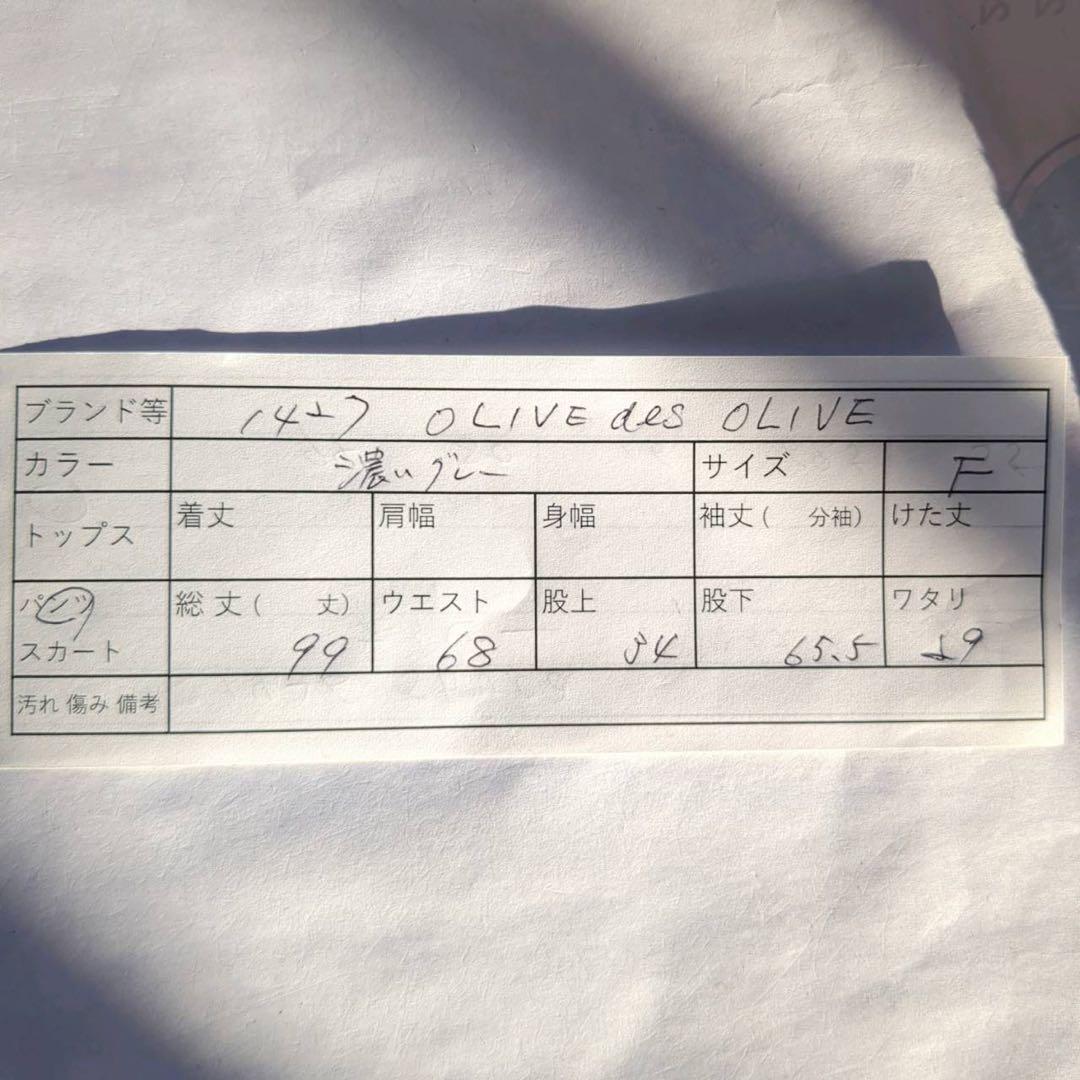 ブランド等 1427 OLIVE des OLIVE
カラー 濃いグレー サイズ F
トップス 着丈 肩幅 身幅 袖丈( 分袖) けた丈
パンツ 総丈( 丈) ウエスト 股上 股下 ワタリ
スカート 99 68 34 65.5 29
汚れ 傷み 備考